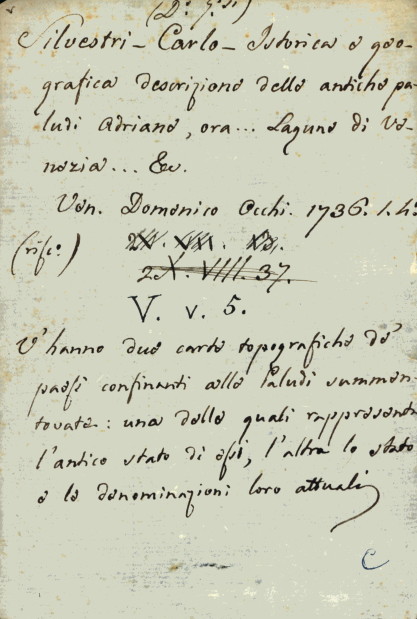 Silvestri - Carlo - Istorica e geo-
grafica descrizione delle antiche pa-
ludi Adriane, ora... Lagune di Ve-
nezia... &c.
Ven. Domenico Occhi. 1736. 1. 4.°
2X. VIII. 37.
V. v. 5.
V' hanno due carte topografiche de'
paesi confinanti alle Paludi summen-
tovate: una delle quali rappresenta
l'antico stato di essi, l'altra lo stato
e le denominazioni loro attuali
C